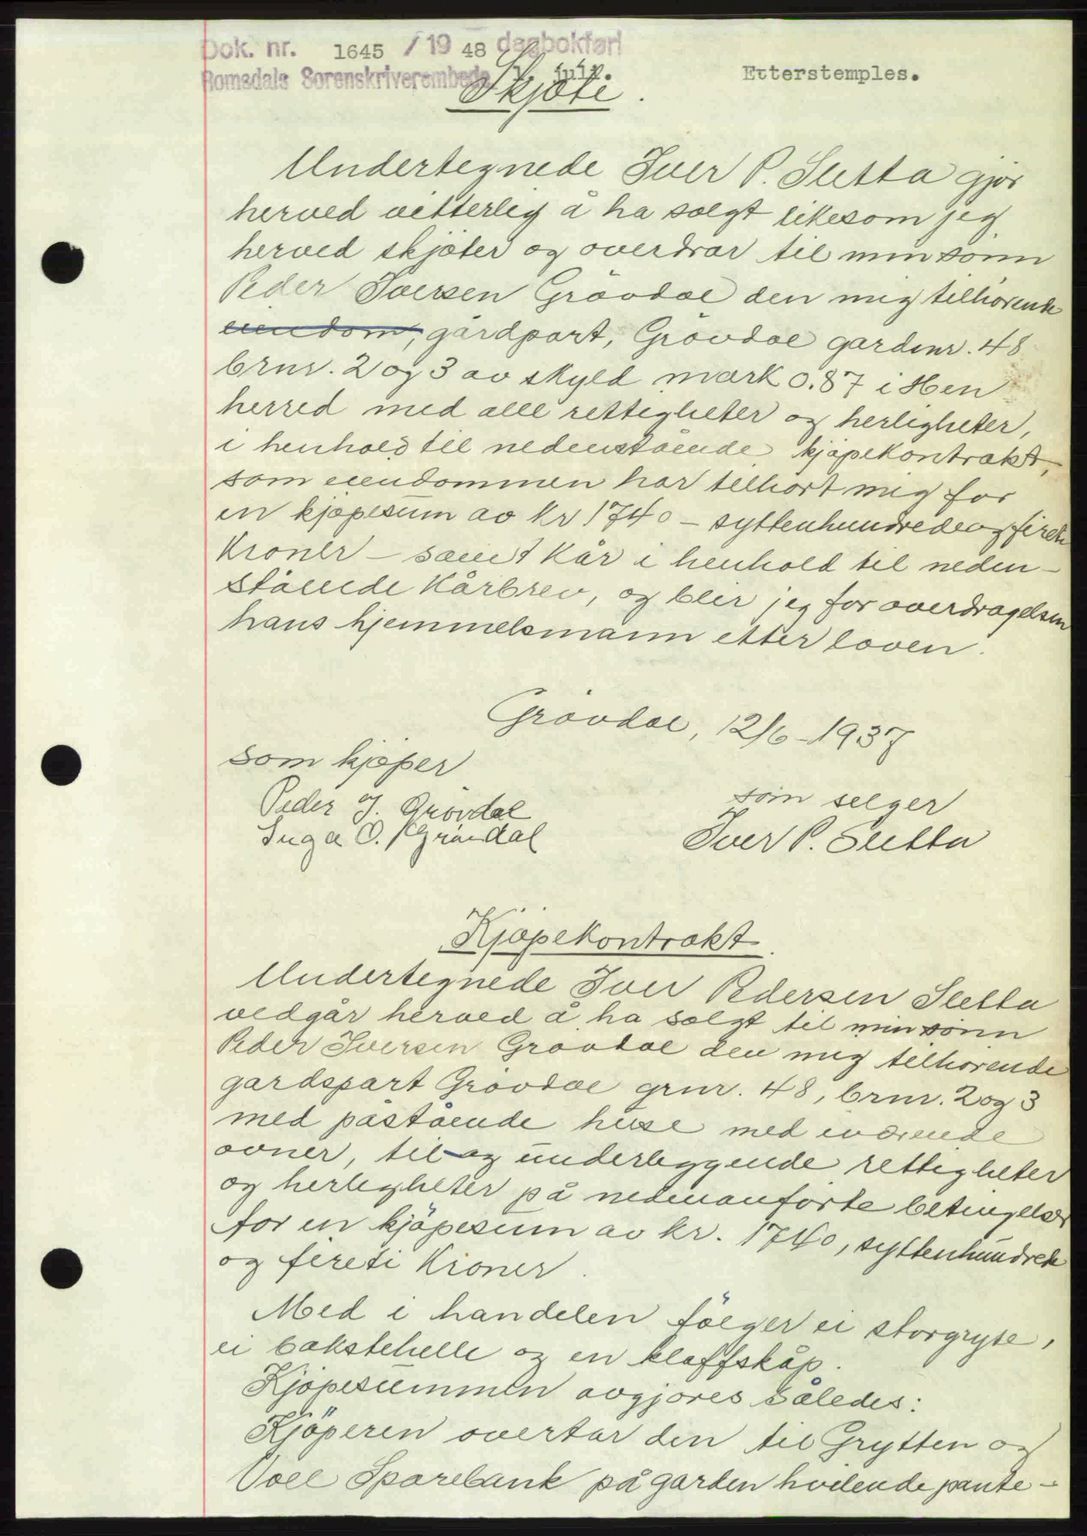 Dok. nr. 1645 / 19 48 dagbokført
Romsdals Sorenskriverembede 1. juli. Etterstemples.
Skjøte.
Undertegnede Iver P. Sletta gjør
herved vitterlig å ha solgt likesom jeg
herved skjøter og overdrar til min sønn
Peder Iversen Grøvdal den mig tilhørende
eiendom, gårdpart, Grøvdal gardsnr. 48
brnr. 2 og 3 av skyld mark 0.87 i Hen
herred med alle rettigheter og herligheter,
i henhold til nedenstående kjøpekontrakt,
som eiendommen har tilhørt mig for
en kjøpesum av kr 1740 - syttenhundredeogfireti
Kroner - samt Kår i henhold til neden-
stående Kårbrev, og blir jeg for overdragelsen
hans hjemmelsmann etter loven.
Grøvdal, 12/6 - 1937
som kjøper
Peder I. Grøvdal
Inga O. Grøvdal
som selger
Iver P. Sletta
Kjøpekontrakt.
Undertegnede Iver Pedersen Sletta
vedgår herved å ha solgt til min sønn
Peder Iversen Grøvdal den mig tilhørende
gardspart Grøvdal grnr. 48, brnr. 2 og 3
med påstående huse med iværende
ovner, til og underliggende rettigheter
og herligheter på nedenanførte betingelser
for en kjøpesum av kr. 1740, syttenhundrede
og fireti Kroner.
Med i handelen følger ei storgryte,
ei bakstehelle og en klaffskåp.
Kjøpesummen avgjøres således:
Kjøperen overtar den til Grytten og
Voll Sparebank på garden hvilende pante-